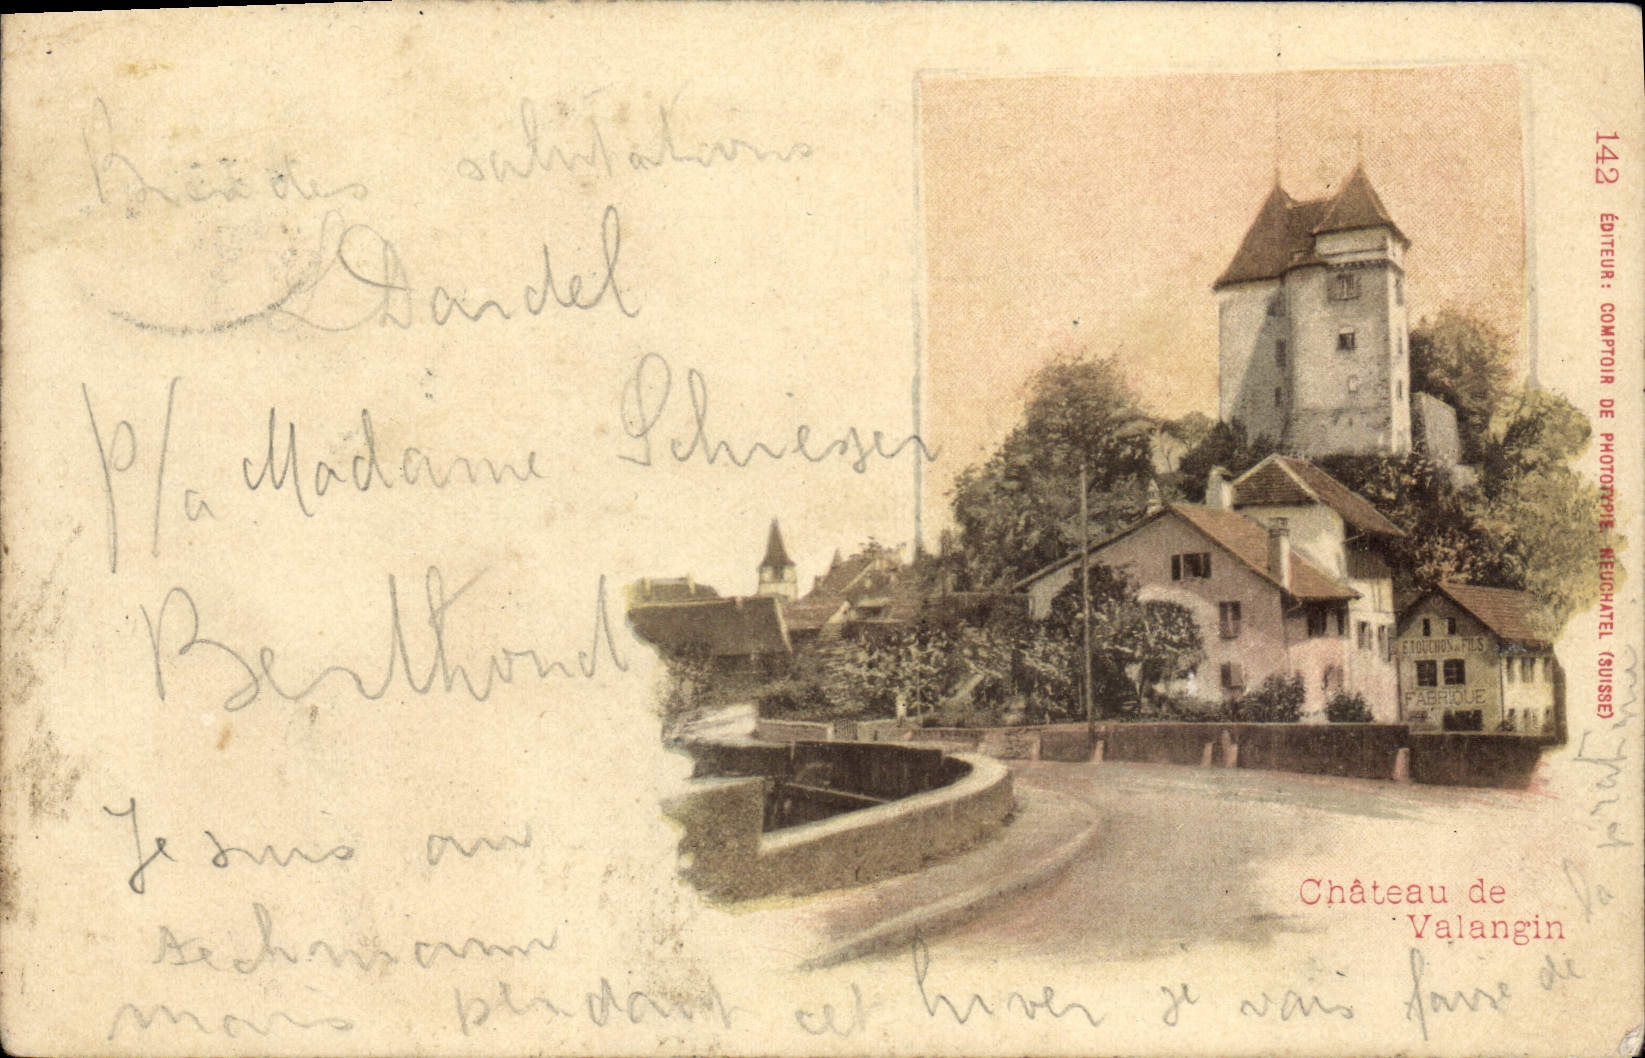 salutations
Dardel
p/a Madame Schiesser
Berthoud
Je suis au
technicum
mais pendant cet hiver je vais faire de la patinu
142 ÉDITEUR: COMPTOIR DE PHOTOTYPIE NEUCHATEL (SUISSE)
E. TOUCHON & FILS
FABRIQUE
Château de
Valangin